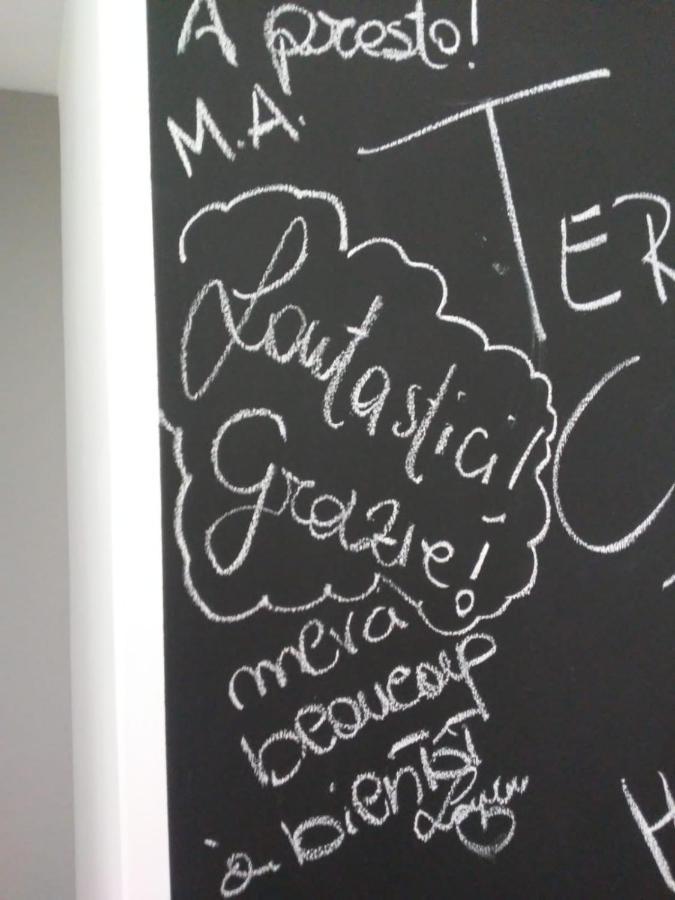 A presto!
M.A.
TER
Fantastici!
Grazie!
merci
beaucoup
à bientôt